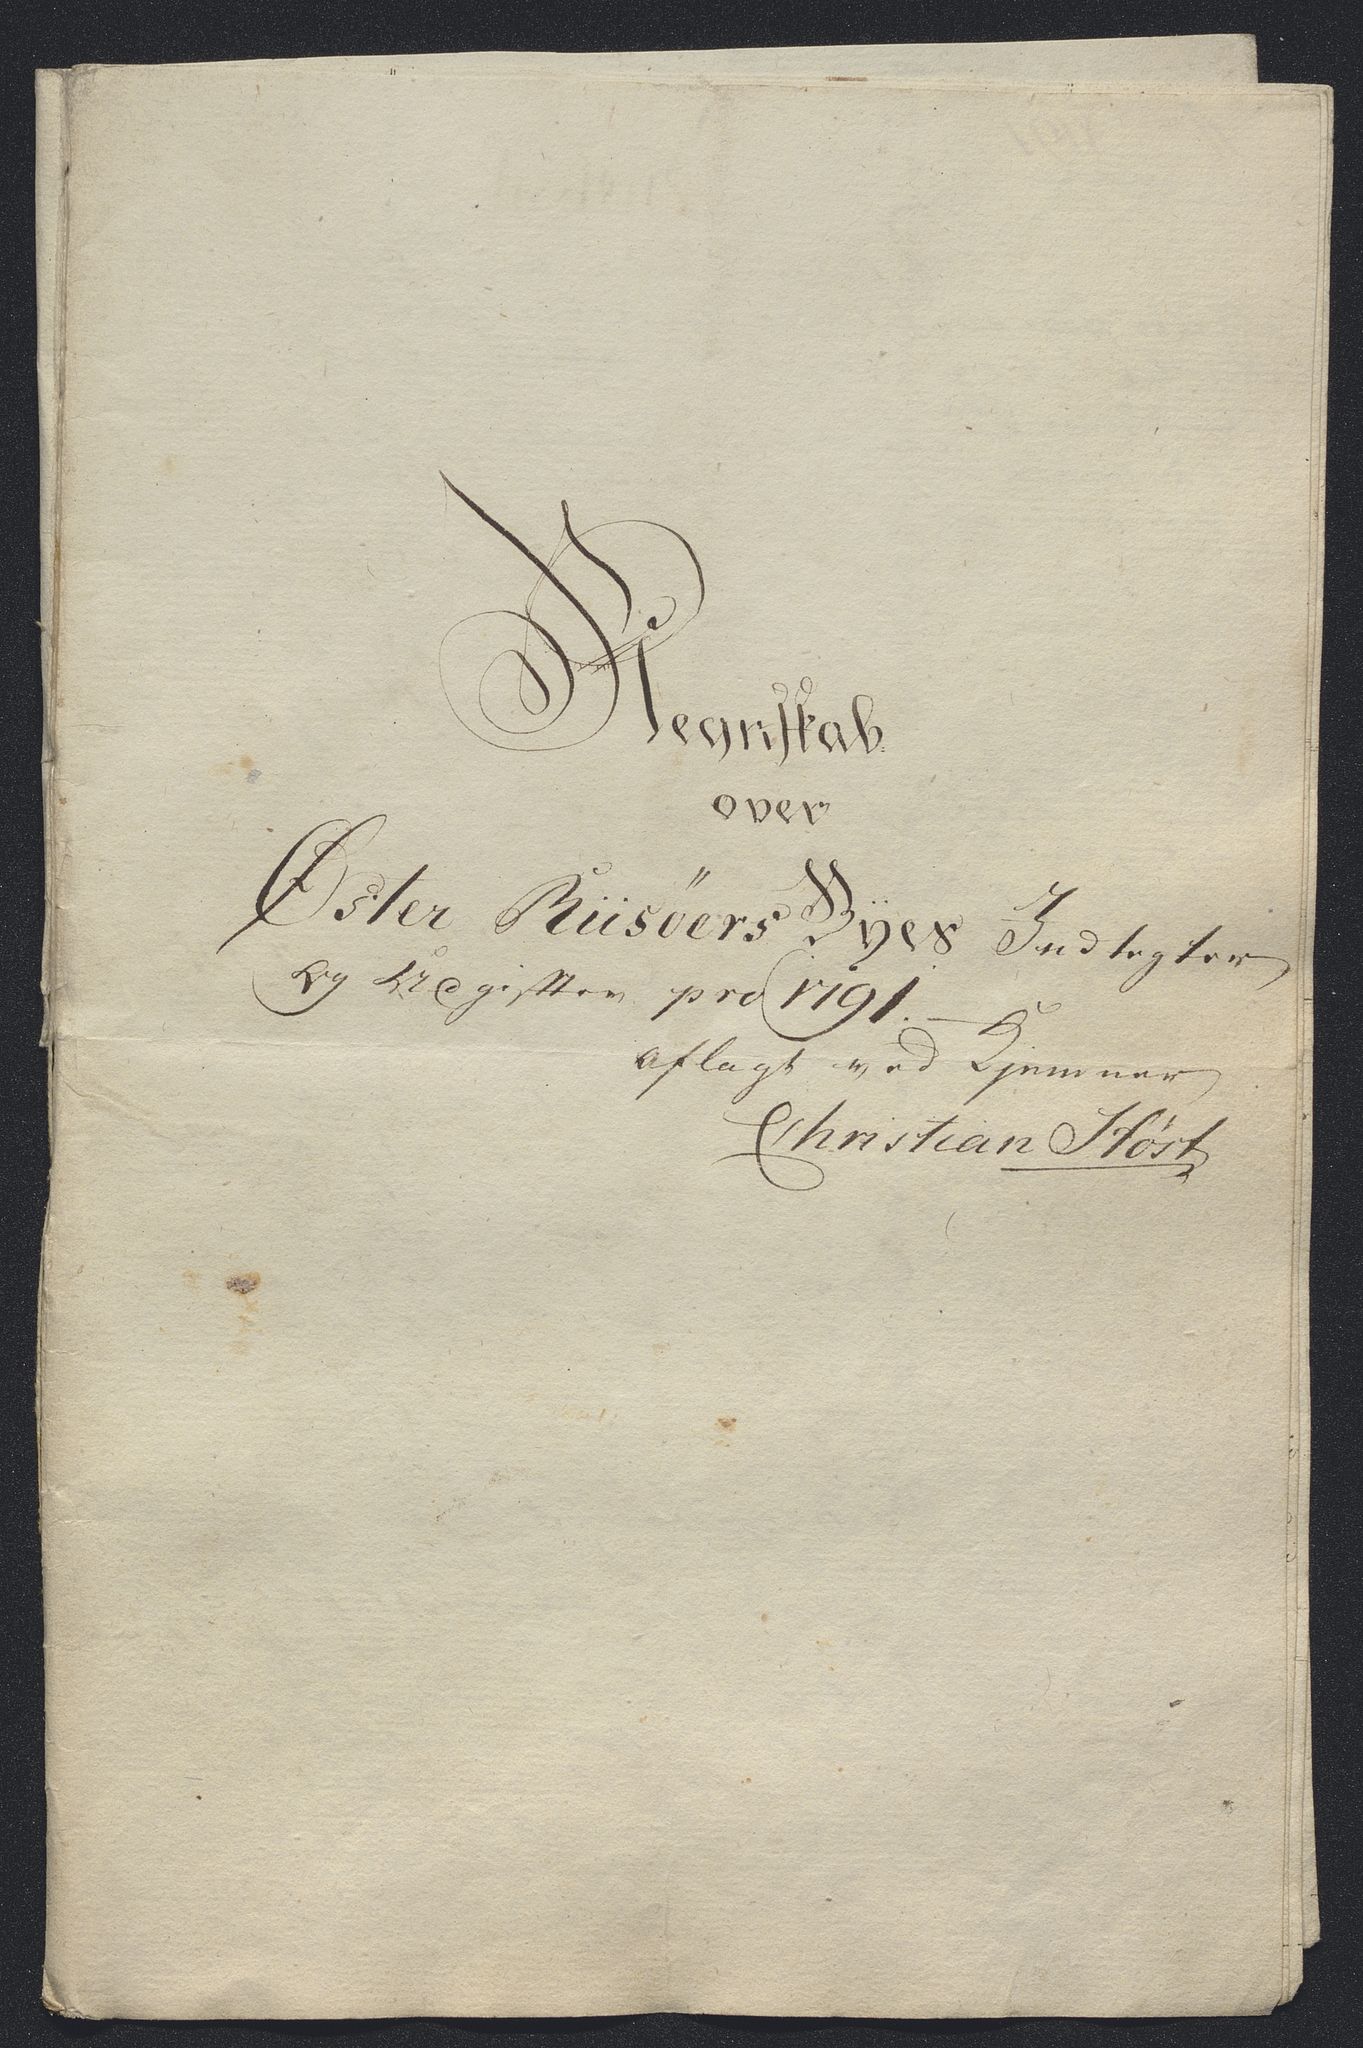 Regnskab
over
Øster Riisöers Byes Indtegter
og Udgifter pro 1791.
aflagt ved Kjemner
Christian Höst